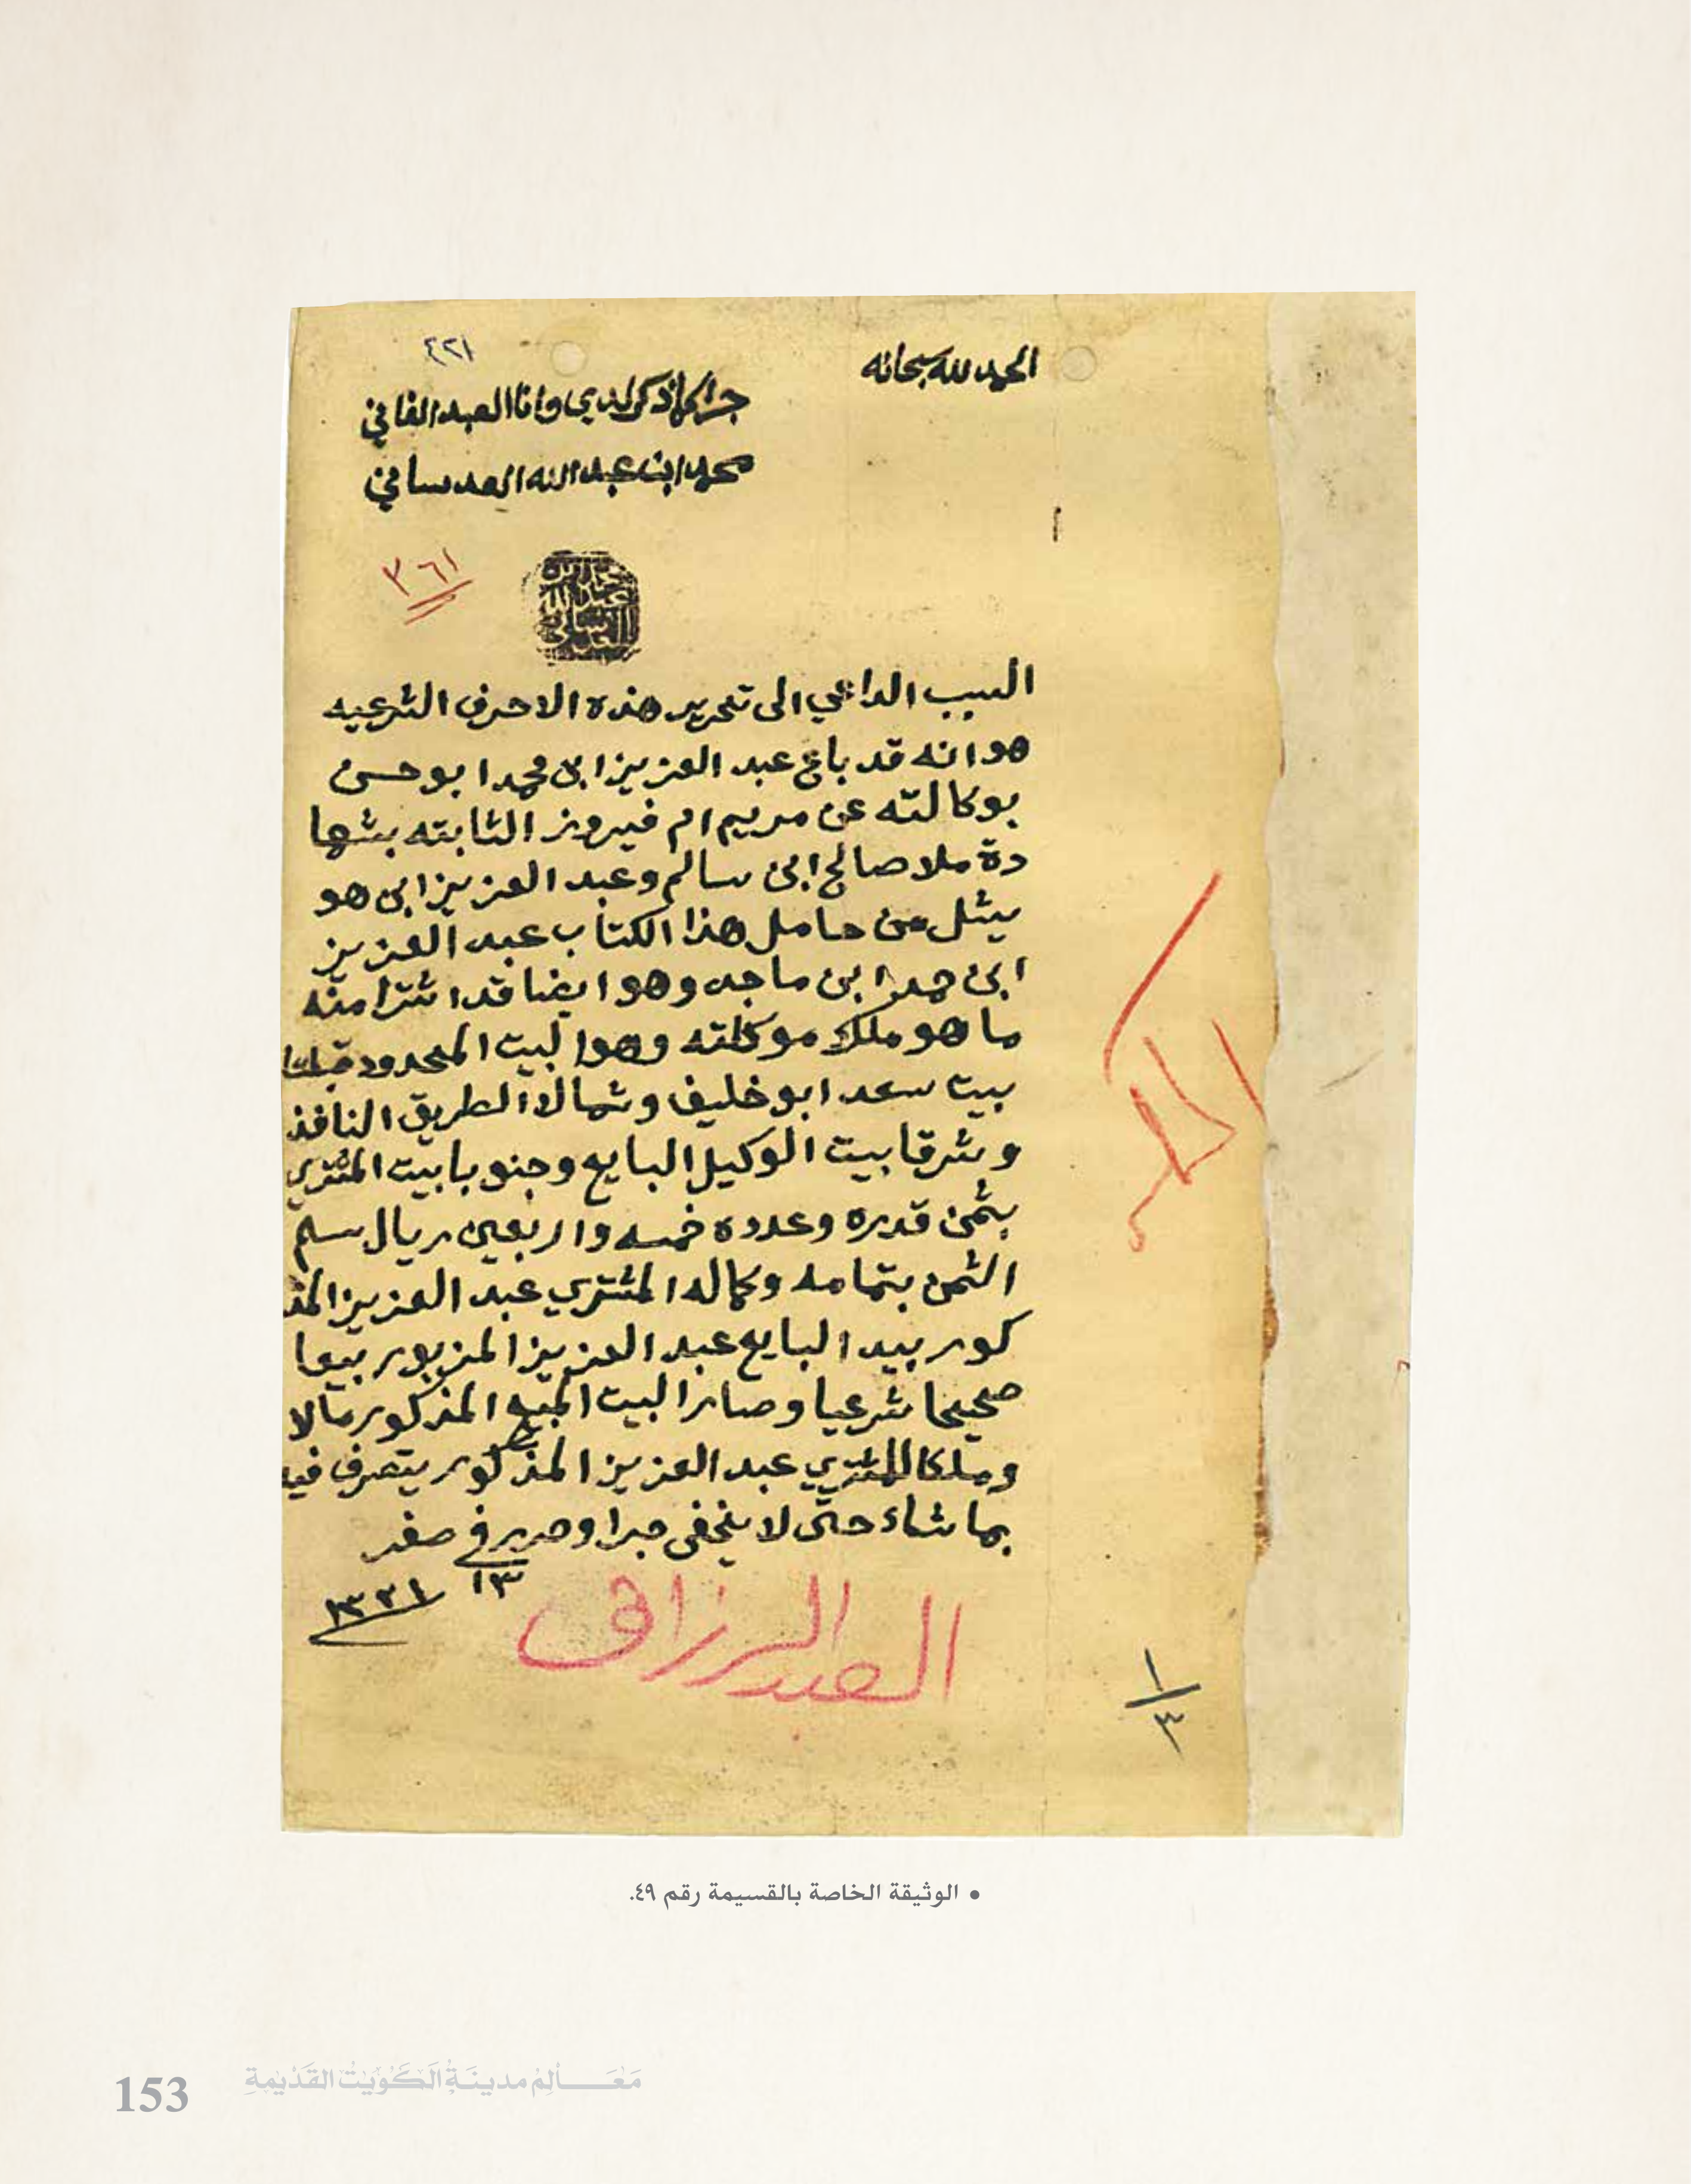 الحمد لله سبحانه
٤٢١
جرا كما ذكر لدي وانا العبد الفاني
محمد ابن عبد الله العدساني
٣٦١
محمد بن
عبد الله
العدساني
السبب الداعي الى تحرير هذه الاحرف الشرعيه
هو انه قد باع عبد العزيز ابن محمد ابو حسن
بوكالته عن مريم ام فيروز الثابته بشها
دة ملا صالح ابن سالم وعبد العزيز ابن هو
يشل من حامل هذا الكتاب عبد العزيز
ابن حمد ابن ماجد وهو ايضا قد اشترا منه
ما هو ملك موكلته وهو البيت المحدود قبلتا
بيت سعد ابو خليف وشمالا الطريق النافذ
وشرقا بيت الوكيل البايع وجنوبا بيت المشتري
بثمن قدره وعدده خمسه واربعين ريال سلم
الثمن بتمامه وكماله المشتري عبد العزيز المذ
كور بيد البايع عبد العزيز المزبور بيعا
صحيحا شرعيا وصار البيت المبيع المذكور مالا
وملكا للمشتري عبد العزيز المذكور يتصرف فيه
بما شاء حتى لا يخفى جرا وحرر في صفر
١٣ ١٣٢١
العبد الرزاق
١/٣
• الوثيقة الخاصة بالقسيمة رقم ٤٩.
153 مَعَالِم مدينَة الكُوَيْت القَدْيمةِ